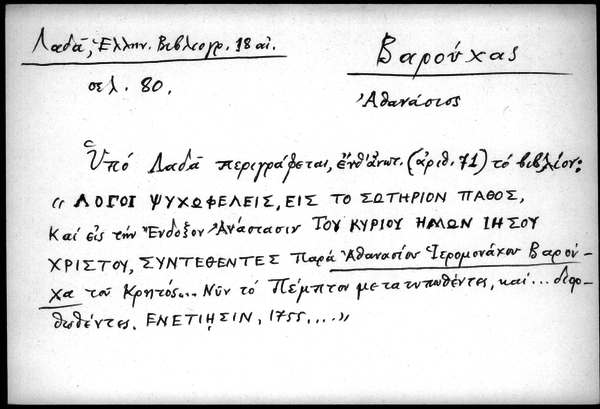 Λαδᾶ, Ἑλλην. Βιβλιογρ. 18 αἰ.
Βαρούχας
σελ. 80.
Ἀθανάσιος
Ὑπό Λαδᾶ περιγράφεται, ἔνθ' ἀνωτ. (ἀριθ. 71) τό βιβλίον:
« ΛΟΓΟΙ ΨΥΧΩΦΕΛΕΙΣ, ΕΙΣ ΤΟ ΣΩΤΗΡΙΟΝ ΠΑΘΟΣ,
Καί εἰς τήν Ἔνδοξον Ἀνάστασιν ΤΟΥ ΚΥΡΙΟΥ ΗΜΩΝ ΙΗΣΟΥ
ΧΡΙΣΤΟΥ, ΣΥΝΤΕΘΕΝΤΕΣ Παρά Ἀθανασίου Ἱερομονάχου Βαρού-
χα τοῦ Κρητός... Νῦν τό Πέμπτον μετατυπωθέντες, καί... διορ-
θωθέντες. ΕΝΕΤΙΗΣΙΝ, 1755....»